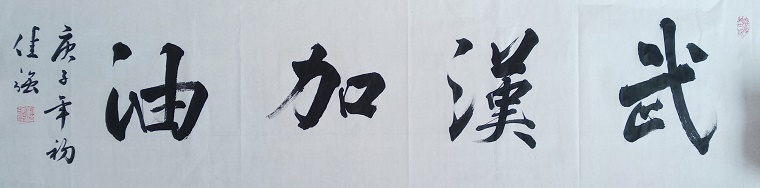 武漢加油
庚子年初
佳強